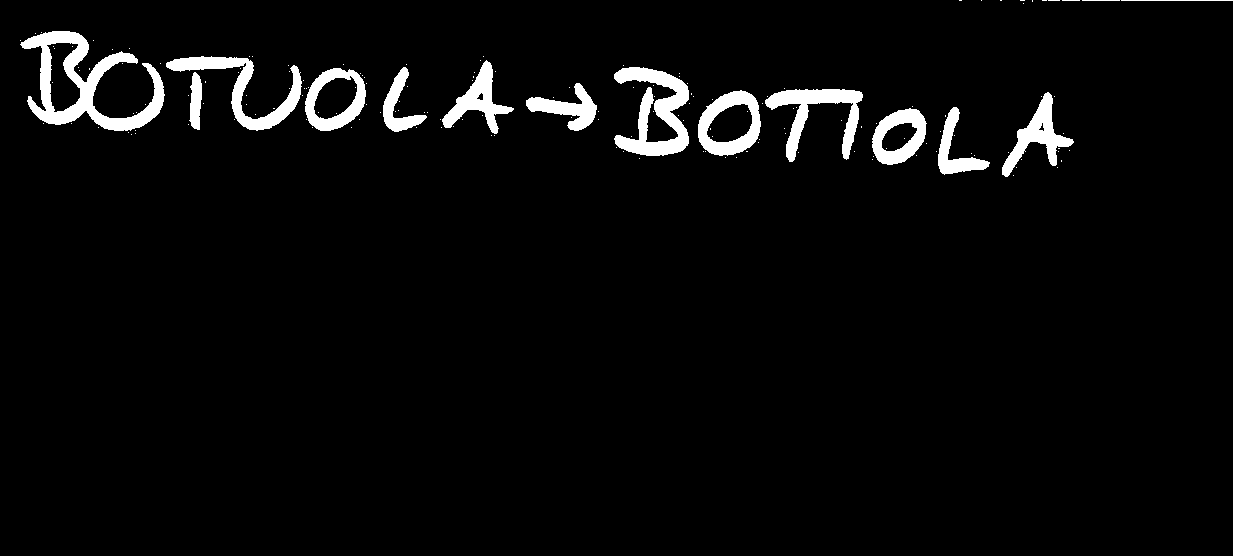 BOTUOLA → BOTIOLA